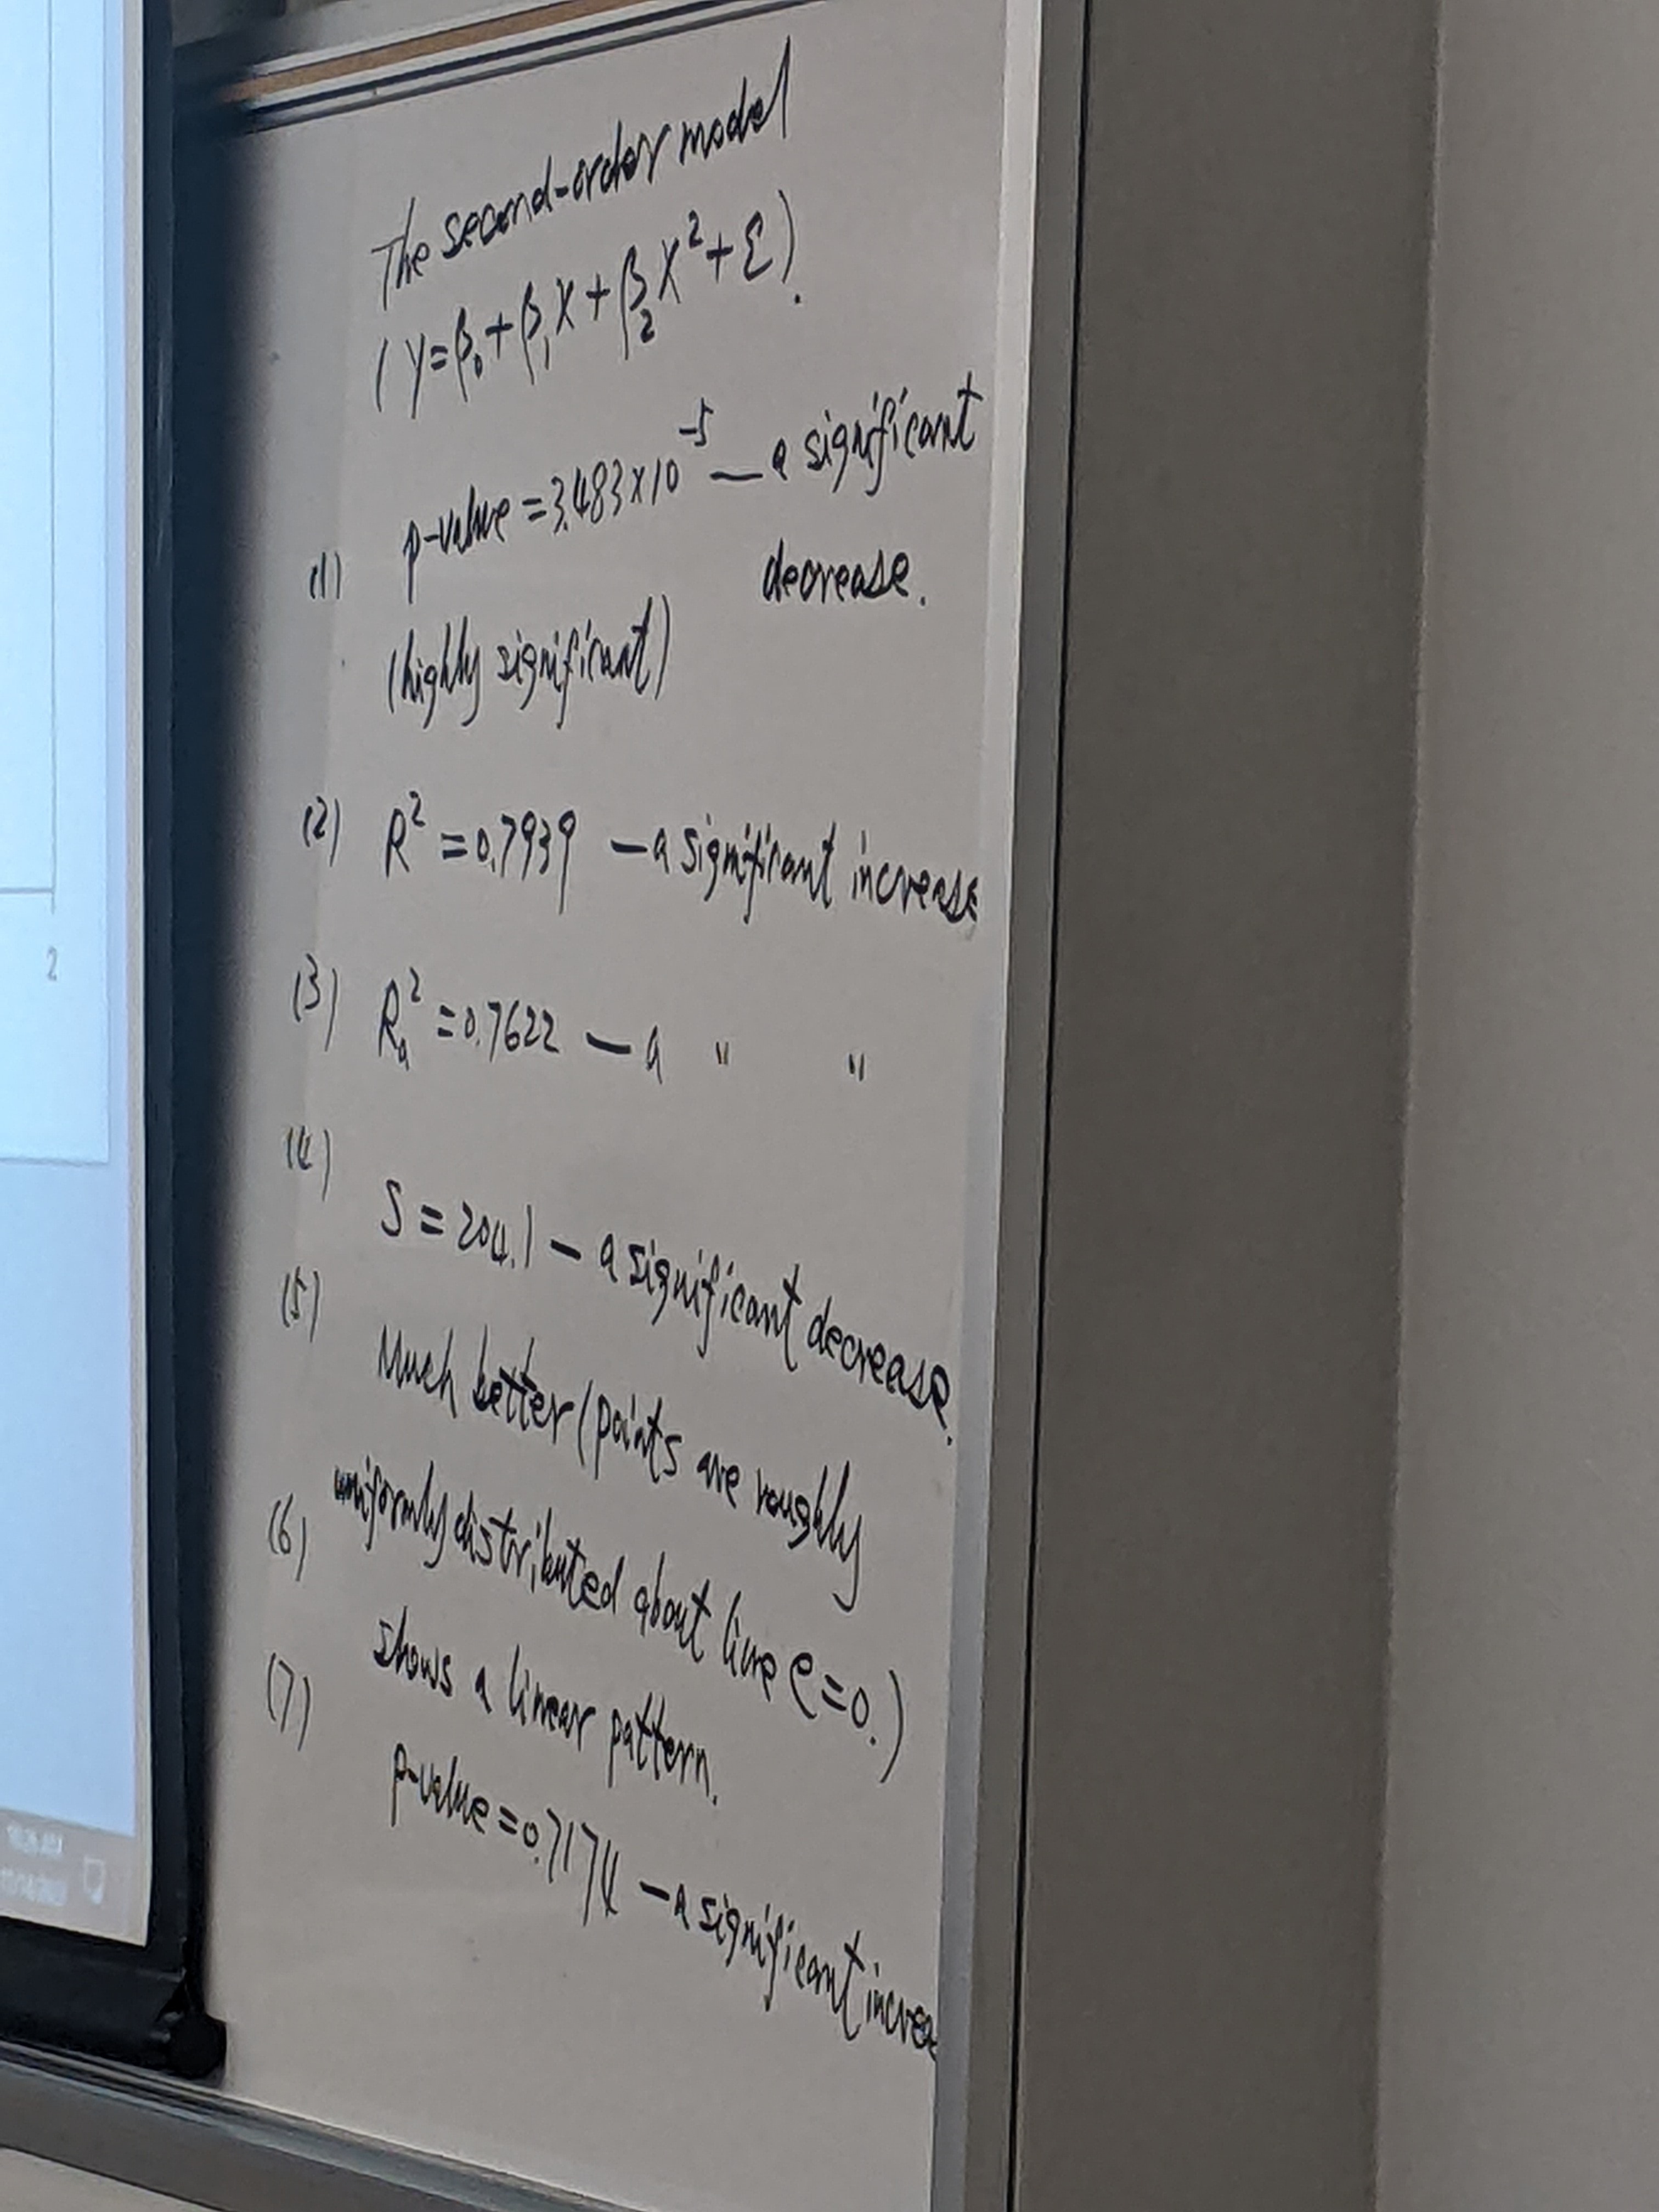 The second-order model
(Y=β₀+β₁X+β₂X²+ε).
(1) p-value = 3.483×10⁻⁵ — a significant
decrease.
(highly significant)
(2) R² = 0.7939 — a significant increase
(3) Rₐ² = 0.7622 — a " "
(4) S = 204.1 — a significant decrease.
(5) Much better (points are roughly
uniformly distributed about line e=0.)
(6) shows a linear pattern.
(7) p-value = 0.7174 — a significant increa
2